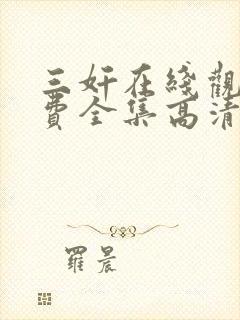 三奸在綫觀
費全集高清
羅晨